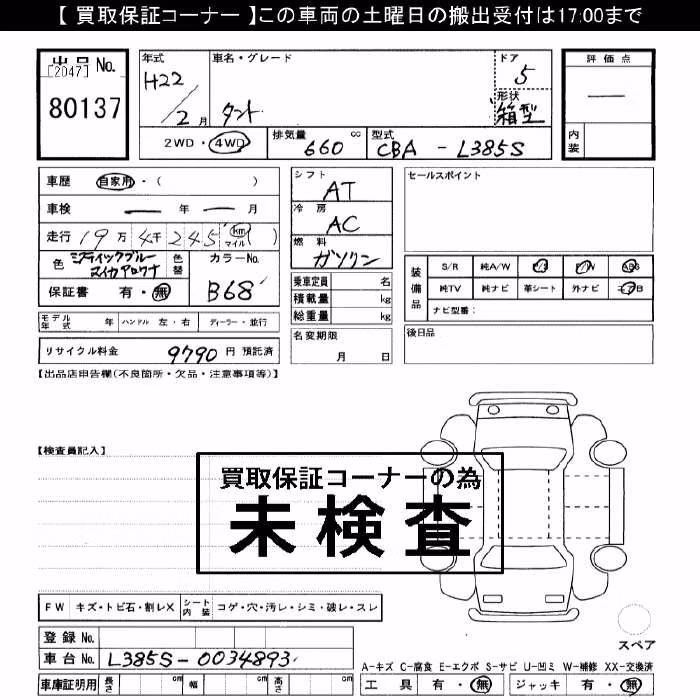 【 買取保証コーナー 】この車両の土曜日の搬出受付は17:00まで
出品 No.
[2047]
80137
年式 H22 / 2月
車名・グレード
タント
ドア 5
形状 箱型
2WD・4WD
排気量 660 cc
型式 CBA - L385S
評価点
―
内装
車歴 自家用・( )
車検 ― 年 ― 月
走行 19万 4千 245 km マイル ( )
色 ミスティックブルー マイカ
色替
カラーNo. B68
保証書 有・無
モデル年式 年 ハンドル 左・右 ディーラー・並行
リサイクル料金 9790 円 預託済
シフト AT
冷房 AC
燃料 ガソリン
乗車定員 名
積載量 kg
総重量 kg
名変期限
月 日
セールスポイント
装備品
S/R 純A/W P/S P/W ABS
純TV 純ナビ 革シート 外ナビ エアB
ナビ型番:
後日品
【出品店申告欄(不良箇所・欠品・注意事項等)】
【検査員記入】
買取保証コーナーの為
未検査
FW キズ・トビ石・割レX シート内装 コゲ・穴・汚レ・シミ・破レ・スレ
登録 No.
車台 No. L385S-0034893
車庫証明用 長さ cm 幅 cm 高さ cm
スペア
A-キズ C-腐食 E-エクボ S-サビ U-凹ミ W-補修 XX-交換済
工具 有・無 ジャッキ 有・無